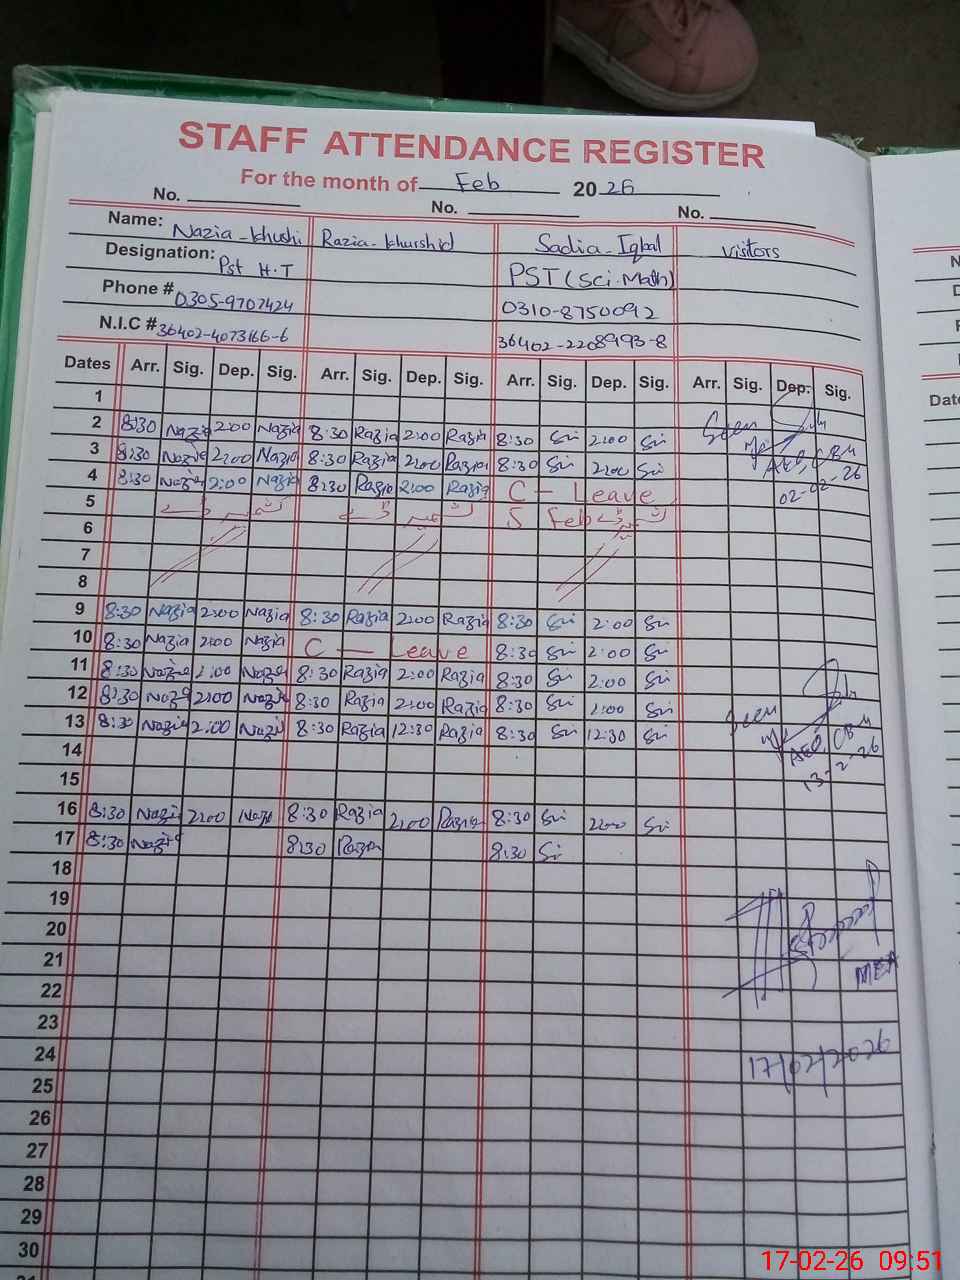 STAFF ATTENDANCE REGISTER
For the month of Feb 20 26
No. No. No.
Name: Nazia-khushi Razia-khurshid Sadia-Iqbal visitors
Designation: Pst H.T PST (Sci.Math)
Phone # 0305-9707424 0310-8750092
N.I.C # 36402-4073166-6 36402-2208993-8
Dates Arr. Sig. Dep. Sig. Arr. Sig. Dep. Sig. Arr. Sig. Dep. Sig. Arr. Sig. Dep. Sig.
1
2 8:30 Nazia 2:00 Nazia 8:30 Razia 2:00 Razia 8:30 2:00 Seen
3 8:30 Nazia 2:00 Nazia 8:30 Razia 2:00 Razia 8:30 2:00 AEO, CBM
4 8:30 Nazia 2:00 Nazia 8:30 Razia 2:00 Razia C - Leave 02-02-26
5 کشمیر ڈے کشمیر ڈے 5 Feb کشمیر ڈے
6
7
8
9 8:30 Nazia 2:00 Nazia 8:30 Razia 2:00 Razia 8:30 2:00
10 8:30 Nazia 2:00 Nazia C - Leave 8:30 2:00
11 8:30 Nazia 2:00 Nazia 8:30 Razia 2:00 Razia 8:30 2:00
12 8:30 Nazia 2:00 Nazia 8:30 Razia 2:00 Razia 8:30 2:00 Seen
13 8:30 Nazia 2:00 Nazia 8:30 Razia 12:30 Razia 8:30 12:30 AEO, CBM
14 13-2-26
15
16 8:30 Nazia 2:00 Nazia 8:30 Razia 2:00 Razia 8:30 2:00
17 8:30 Nazia 8:30 Razia 8:30
18
19
20
21 MEA
22
23
24 17/02/2026
25
26
27
28
29
30
17-02-26 09:51